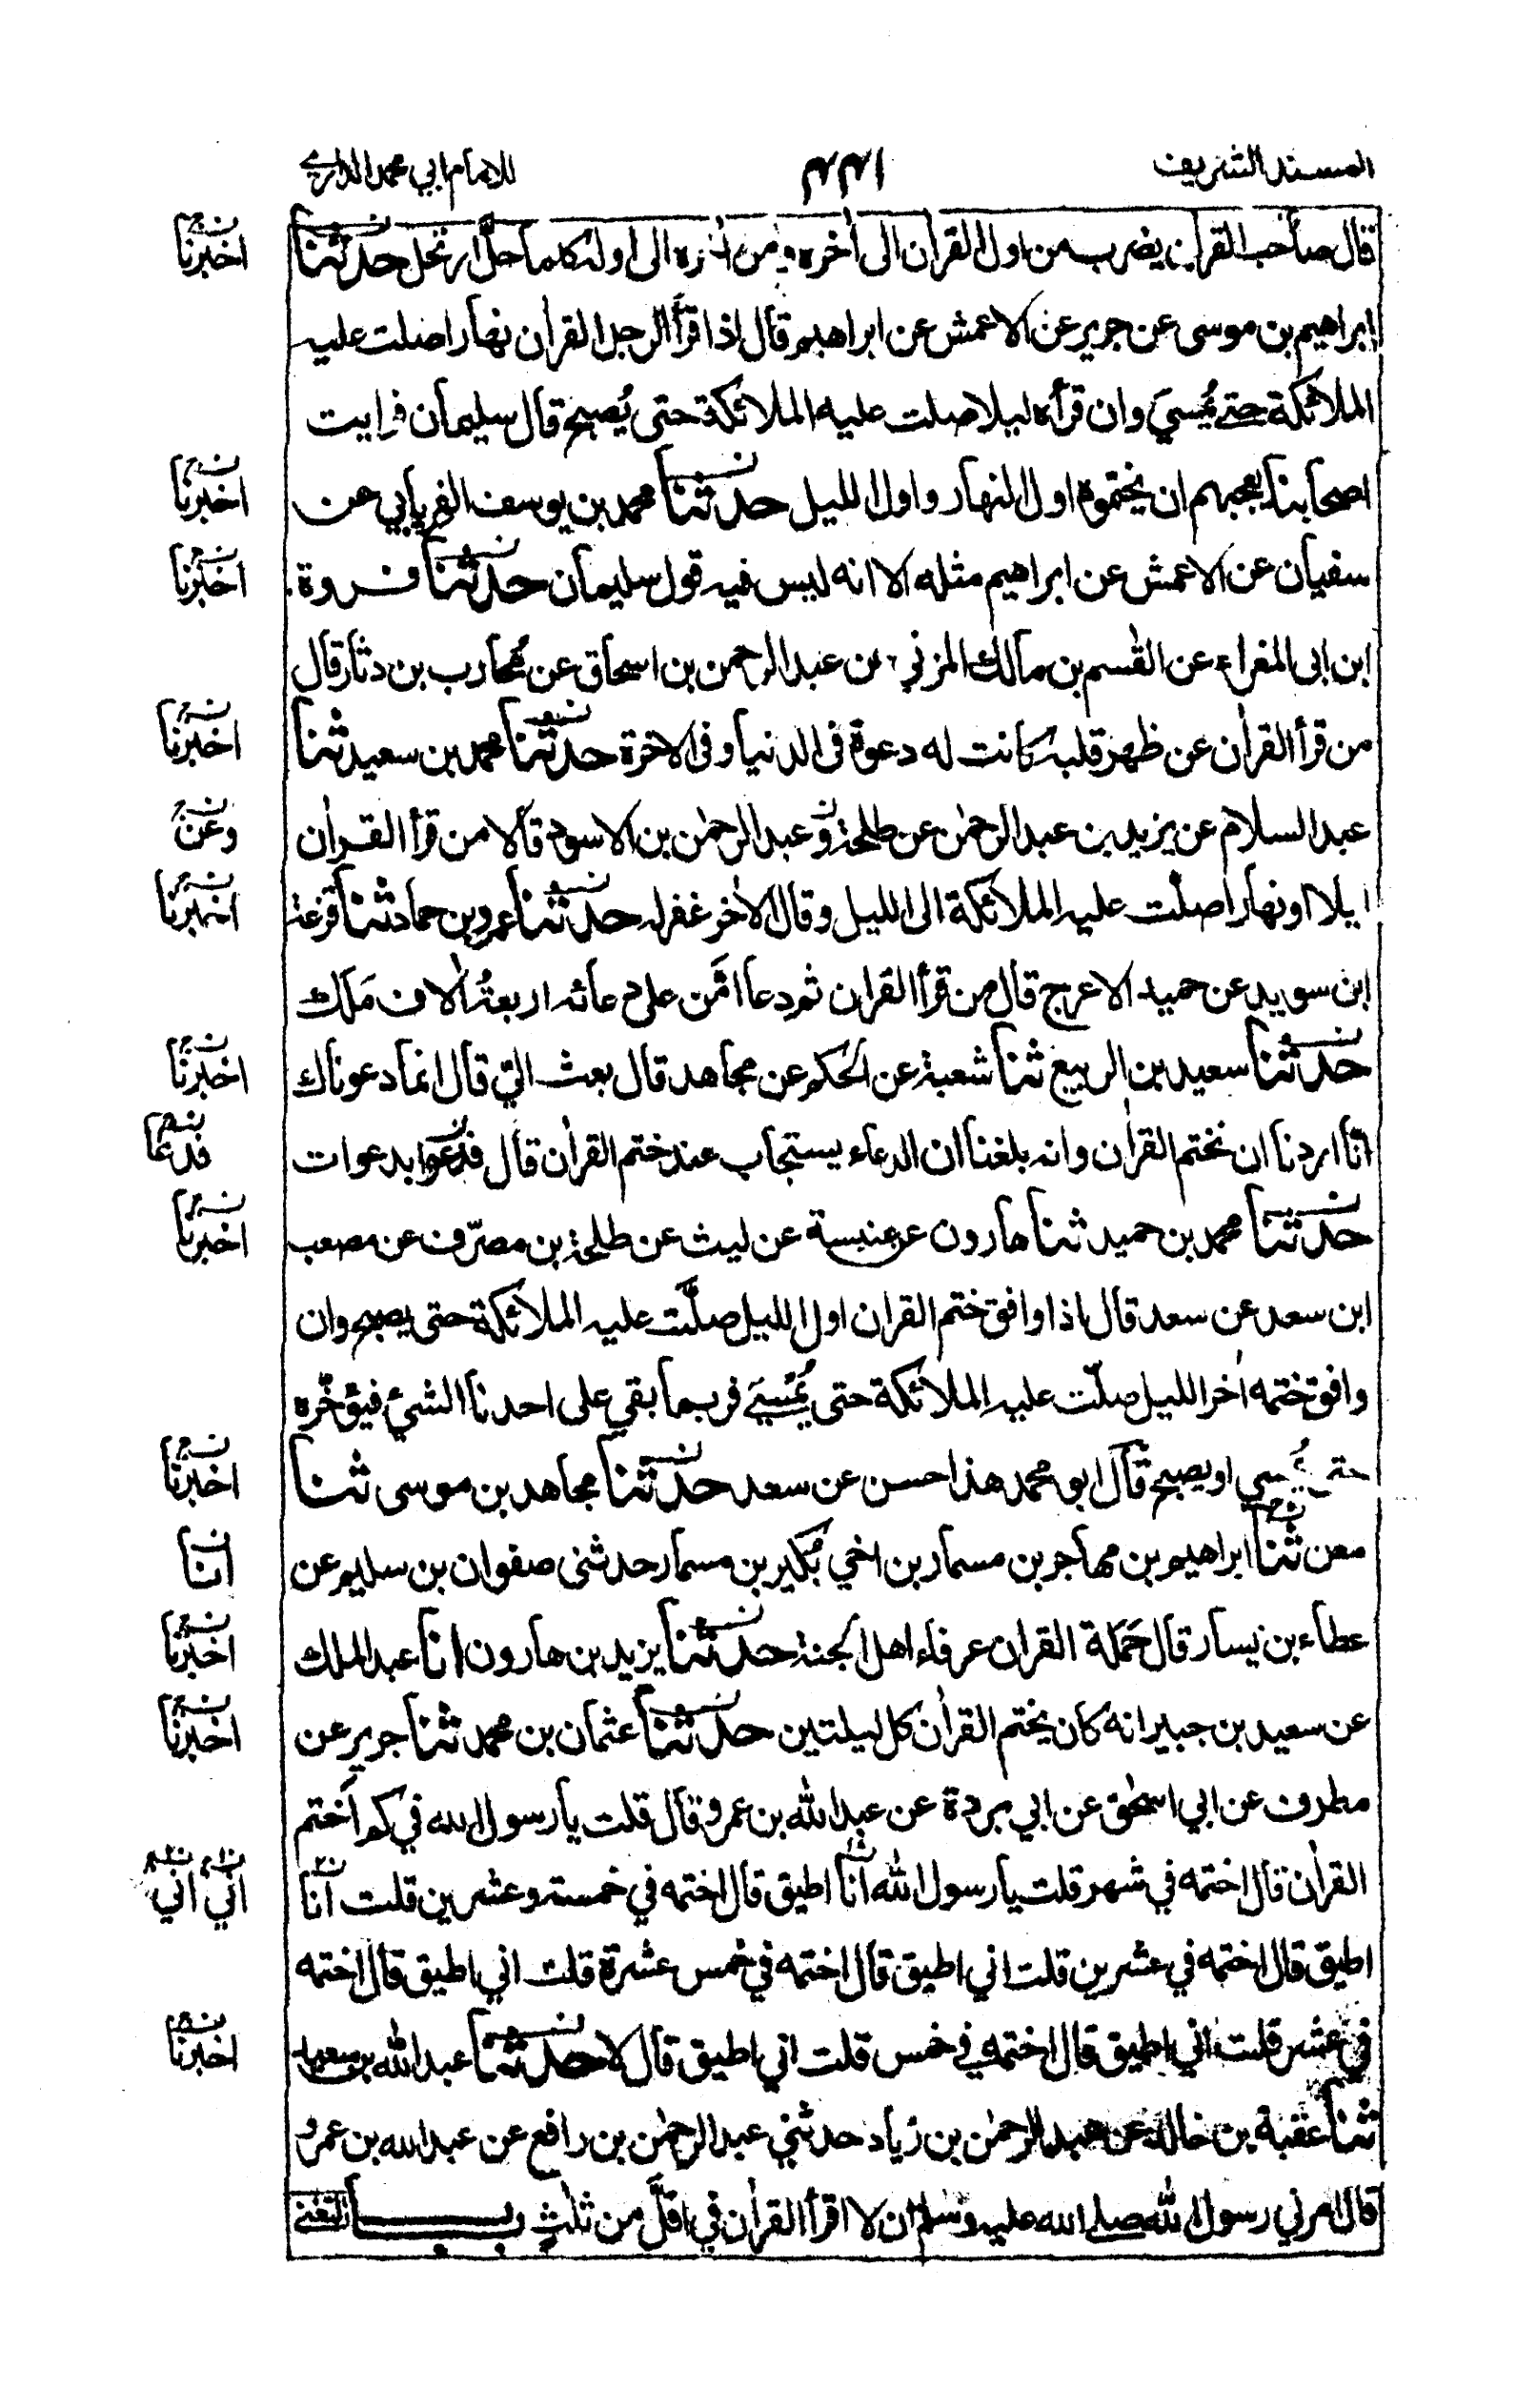 المسند الشريف ٤٤١ للامام ابي محمد الدارمي
قال صاحب القران يضرب من اول القران الى اٰخره ومن اٰخره الى اوله كلما حلّ ارتحل حدثنا
ابراهيم بن موسى عن جرير عن الاعمش عن ابراهيم قال اذا قرأ الرجل القراٰن نهارا صلت عليه
الملائكة حتى يُمسيَ وان قرأه ليلا صلت عليه الملائكة حتى يُصبح قال سليمان فرايت
اصحابنا يعجبهم ان يختموه اول النهار واول الليل حدثنا محمد بن يوسف الفريابي عن
سفيان عن الاعمش عن ابراهيم مثله الا انه ليس فيه قول سليمان حدثنا فروة
ابن ابى المغراء عن القٰسم بن مالك المزني عن عبد الرحمن بن اسحاق عن مُحارب بن دثار قال
من قرأ القراٰن عن ظهر قلبه كانت له دعوة فى الدنيا وفى الاخرة حدثنا محمد بن سعيد ثنا
عبد السلام عن يزيد بن عبد الرحمٰن عن طلحة و عبد الرحمٰن بن الاسود قالا من قرأ القراٰن
ليلا او نهارا صلّت عليه الملائكة الى الليل وقال الاٰخر غفر له حدثنا عمرو بن حماد ثنا قزعة
ابن سويد عن حميد الاعرج قال من قرأ القران ثم دعا امّن على دعائه اربعةُ اٰلاف مَلَك
حدثنا سعيد بن الربيع ثنا شعبة عن الحكم عن مجاهد قال بعث الي قال انما دعوناك
انّا اردنا ان نختم القراٰن وانه بلغنا ان الدعاء يستجاب عند ختم القراٰن قال فدعوا بدعوات
حدثنا محمد بن حميد ثنا هارون عن عنبسة عن ليث عن طلحة بن مصرّف عن مصعب
ابن سعد عن سعد قال اذا وافق ختم القران اول الليل صلّت عليه الملائكة حتى يصبح وان
وافق ختمه اٰخر الليل صلّت عليه الملائكة حتى يُمْسِيَ فربما بقي على احدنا الشئ فيؤخّره
حتى يُمسي او يصبح قال ابو محمد هذا حسن عن سعد حدثنا مجاهد بن موسى ثنا
معن ثنا ابراهيم بن مهاجر بن مسمار بن اخي بُكير بن مسمار حدثنى صفوان بن سليم عن
عطاء بن يسار قال حَمَلة القران عرفاء اهل الجنة حدثنا يزيد بن هارون انا عبد الملك
عن سعيد بن جبير انه كان يختم القراٰن كل ليلتين حدثنا عثمان بن محمد ثنا جرير عن
مطرف عن ابي اسحٰق عن ابي بردة عن عبد الله بن عمرو قال قلت يا رسول الله في كم اَختم
القراٰن قال اختمه في شهر قلت يا رسول الله انا اطيق قال اختمه في خمسة وعشرين قلت انا
اطيق قال اختمه في عشرين قلت اني اطيق قال اختمه في خمس عشرة قلت اني اطيق قال اختمه
في عشر قلت اني اطيق قال اختمه في خمس قلت اني اطيق قال لا حدثنا عبد الله بن سعيد
ثنا عقبة بن خالد عن عبد الرحمٰن بن زياد حدثني عبد الرحمٰن بن رافع عن عبد الله بن عمرو
قال امرني رسول الله صلى الله عليه وسلم ان لا اقرأ القراٰن في اقلّ من ثلٰثٍ باب التغني
اخبرنا
اخبرنا
اخبرنا
اخبرنا
وعن
اخبرنا
اخبرنا
فدعا
اخبرنا
اخبرنا
انا
اخبرنا
اخبرنا
اني اني
اخبرنا